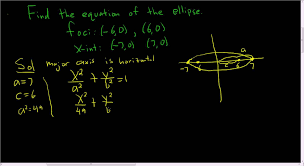 Find the equation of the ellipse.
foci: (-6,0), (6,0)
x-int: (-7,0) (7,0)
Sol major axis is horizontal
a=7
c=6
a²=49
x²/a² + y²/b² = 1
x²/49 + y²/b
a
-7 -6 c 6 7